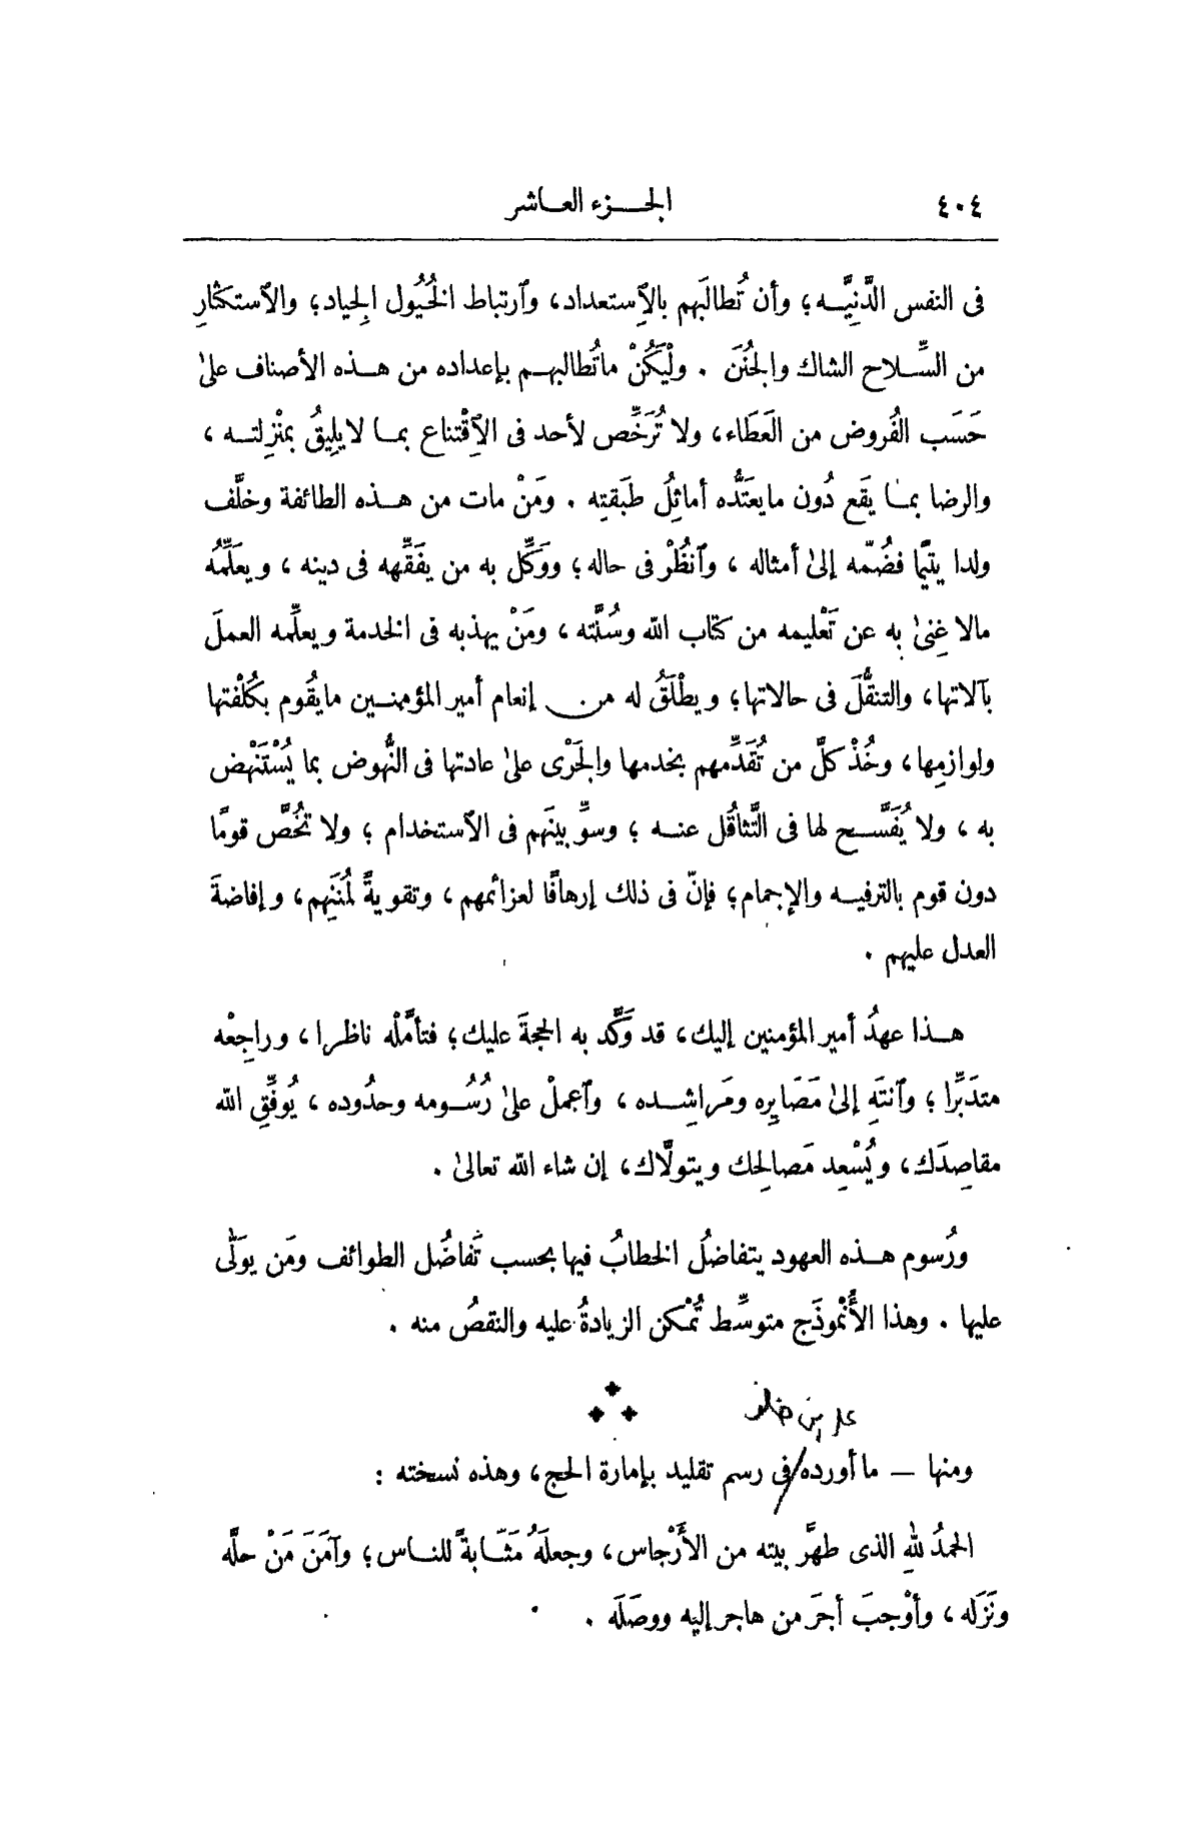 ٤٠٤
الجـزء العـاشر
فى النفس الدَّنِيَّـه؛ وأن تُطالَبَهم بالٱستعداد، وٱرتباط الخُيُول الجِياد؛ والٱستكثارِ
من السِّـلاح الشاك والجُنَنَ . ولْيَكُنْ ماتُطالبهـم بإعداده من هـذه الأصناف علىٰ
حَسَب الفُروض من العَطَاء، ولا تُرَخِّص لأحد فى الٱقْتناع بمـا لايلِيقُ بمنْزِلتـه ،
والرضا بمـا يقَع دُون مايعَتَدُّه أماثِلُ طَبَقتِه . ومَنْ مات من هـذه الطائفة وخلَّف
ولدا يتيًما فضُمّه إلىٰ أمثاله ، وٱنظُرْ فى حاله؛ ووَكِّل به من يفَقِّهه فى دينه ، ويعَلِّمُه
مالا غِنىٰ به عن تَعْليمه من كتاب الله وسُنَّته ، ومَنْ يهذبه فى الخدمة ويعلِّمه العملَ
بآلاتها، والتنقُّلَ فى حالاتها؛ ويطْلَقُ له من إنعام أمير المؤمنـين مايقُوم بكُلْفتها
ولوازمِها، وخُذْ كلَّ من تُقَدِّمهم بخدمها والجَرْى علىٰ عادتها فى النُّهوض بما يُسْتَنْهض
به ، ولا يُفَسَّـح لها فى التَّثاقُل عنـه ؛ وسوِّ بينَهم فى الٱستخدام ؛ ولا تخُصَّ قومًا
دون قوم بالترفيـه والإجمام؛ فإنّ فى ذلك إرهافًا لعزائمهم، وتقويةً لمُنَنِهم، وإفاضةَ
العدل عليهم .
هـذا عهدُ أمير المؤمنين إليك، قد وَكَّد به الحجةَ عليك؛ فتأمَّلْه ناظرا ، وراجِعْه
متدَبِّرا ؛ وٱنتَهِ إلىٰ مَصَايِره ومَراشِـده ، وٱعملْ علىٰ رُسُـومه وحدُوده ، يُوفِّقِ الله
مقاصِدَك، ويُسْعِد مَصالِحك ويتولَّاك، إن شاء الله تعالىٰ .
ورُسوم هـذه العهود يتفاضلُ الخطابُ فيها بحسب تَفاضُل الطوائف ومَن يوَلّٰى
عليها . وهذا الأُنْموذَج متوسِّط تُمْكن الزيادةُ عليه والنقصُ منه .
علي بن خلف
ومنها — ما أورده فى رسم تقليد بإمارة الحج، وهذه نسخته :
الحمدُ للهِ الذى طهَّر بيته من الأَرْجاس، وجعلَهُ مَثَـابةً للنـاس؛ وآمَنَ مَنْ حلَّه
ونَزَلَه، وأوْجبَ أجرَ من هاجر إليه ووصَلَه .